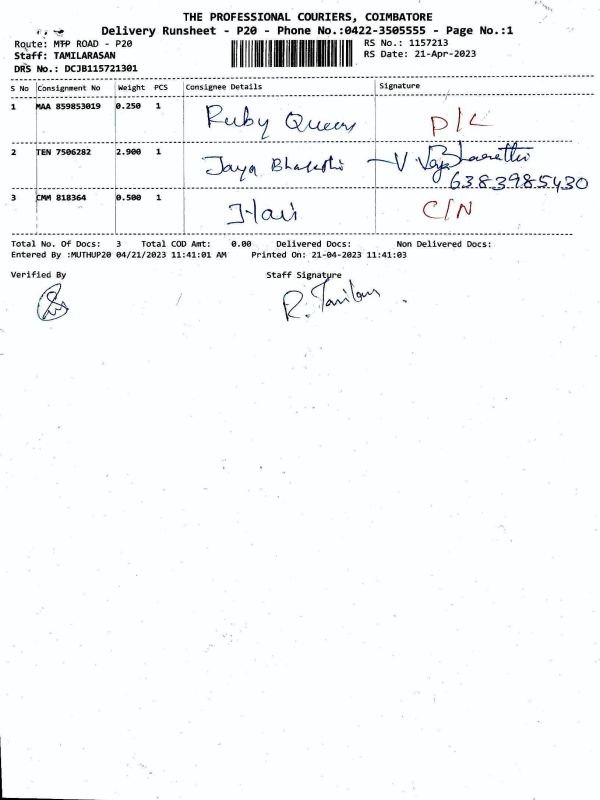 THE PROFESSIONAL COURIERS, COIMBATORE
Delivery Runsheet - P20 - Phone No.:0422-3505555 - Page No.:1
Route: MTP ROAD - P20 RS No.: 1157213
Staff: TAMILARASAN RS Date: 21-Apr-2023
DRS No.: DCJB115721301
S No Consignment No Weight PCS Consignee Details Signature
1 MAA 859853019 0.250 1 Ruby Queen D/L
2 TEN 7506282 2.900 1 Jaya Bharathi V
6383985430
3 CMM 818364 0.500 1 Hari C/N
Total No. Of Docs: 3 Total COD Amt: 0.00 Delivered Docs: Non Delivered Docs:
Entered By :MUTHUP20 04/21/2023 11:41:01 AM Printed On: 21-04-2023 11:41:03
Verified By Staff Signature